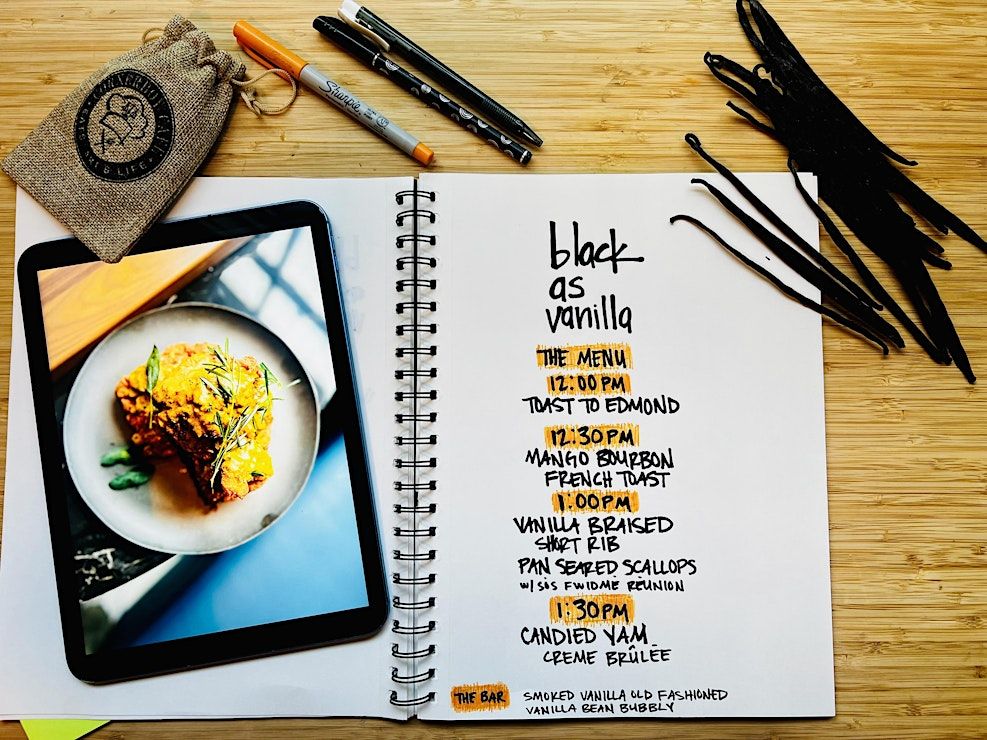 Sharpie
black
as
vanilla
THE MENU
12:00 PM
TOAST TO EDMOND
12:30 PM
MANGO BOURBON
FRENCH TOAST
1:00 PM
VANILLA BRAISED
SHORT RIB
PAN SEARED SCALLOPS
W/ SOS FWIDMÉ RÉUNION
1:30 PM
CANDIED YAM
CREME BRÛLÉE
THE BAR
SMOKED VANILLA OLD FASHIONED
VANILLA BEAN BUBBLY